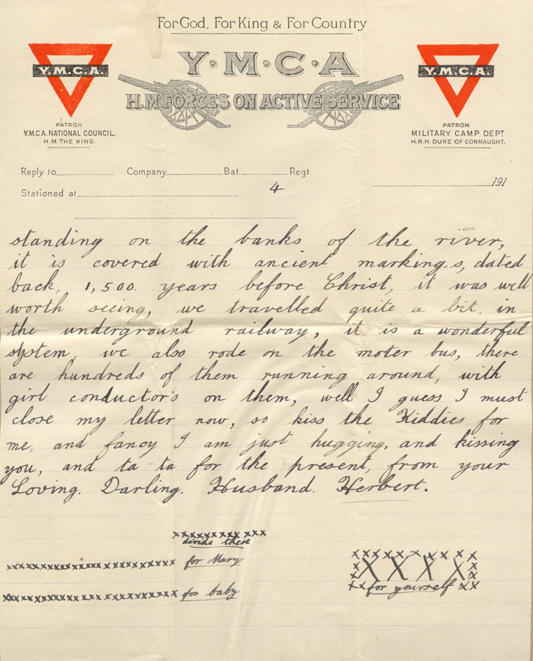 For God, For King & For Country
Y·M·C·A
H.M. FORCES ON ACTIVE SERVICE
Y.M.C.A.
PATRON
Y.M.C.A. NATIONAL COUNCIL.
H.M. THE KING.
Y.M.C.A.
PATRON
MILITARY CAMP DEPT
H.R.H. DUKE OF CONNAUGHT.
Reply to Company Bat. Regt
Stationed at 4 191
standing on the banks of the river,
it is covered with ancient markings, dated
back, 1,500. years before Christ, it was well
worth seeing, we travelled quite a bit, in
the underground railway, it is a wonderful
system, we also rode on the moter bus, there
are hundreds of them running around, with
girl conductor's on them, well I guess I must
close my letter now, so kiss the Kiddies for
me, and fancy I am just hugging, and kissing
you, and ta-ta for the present, from your
Loving. Darling. Husband. Herbert.
xxxxxxxxxxxx
divide these
xxxxxxxxxxxxxxxxxxxxxxxx for Mary
xxxxxxxxxxxxxxxxxxxxxxxx for baby
xxxxxxxxxxxx
x X X X X x
xx for yourself xx